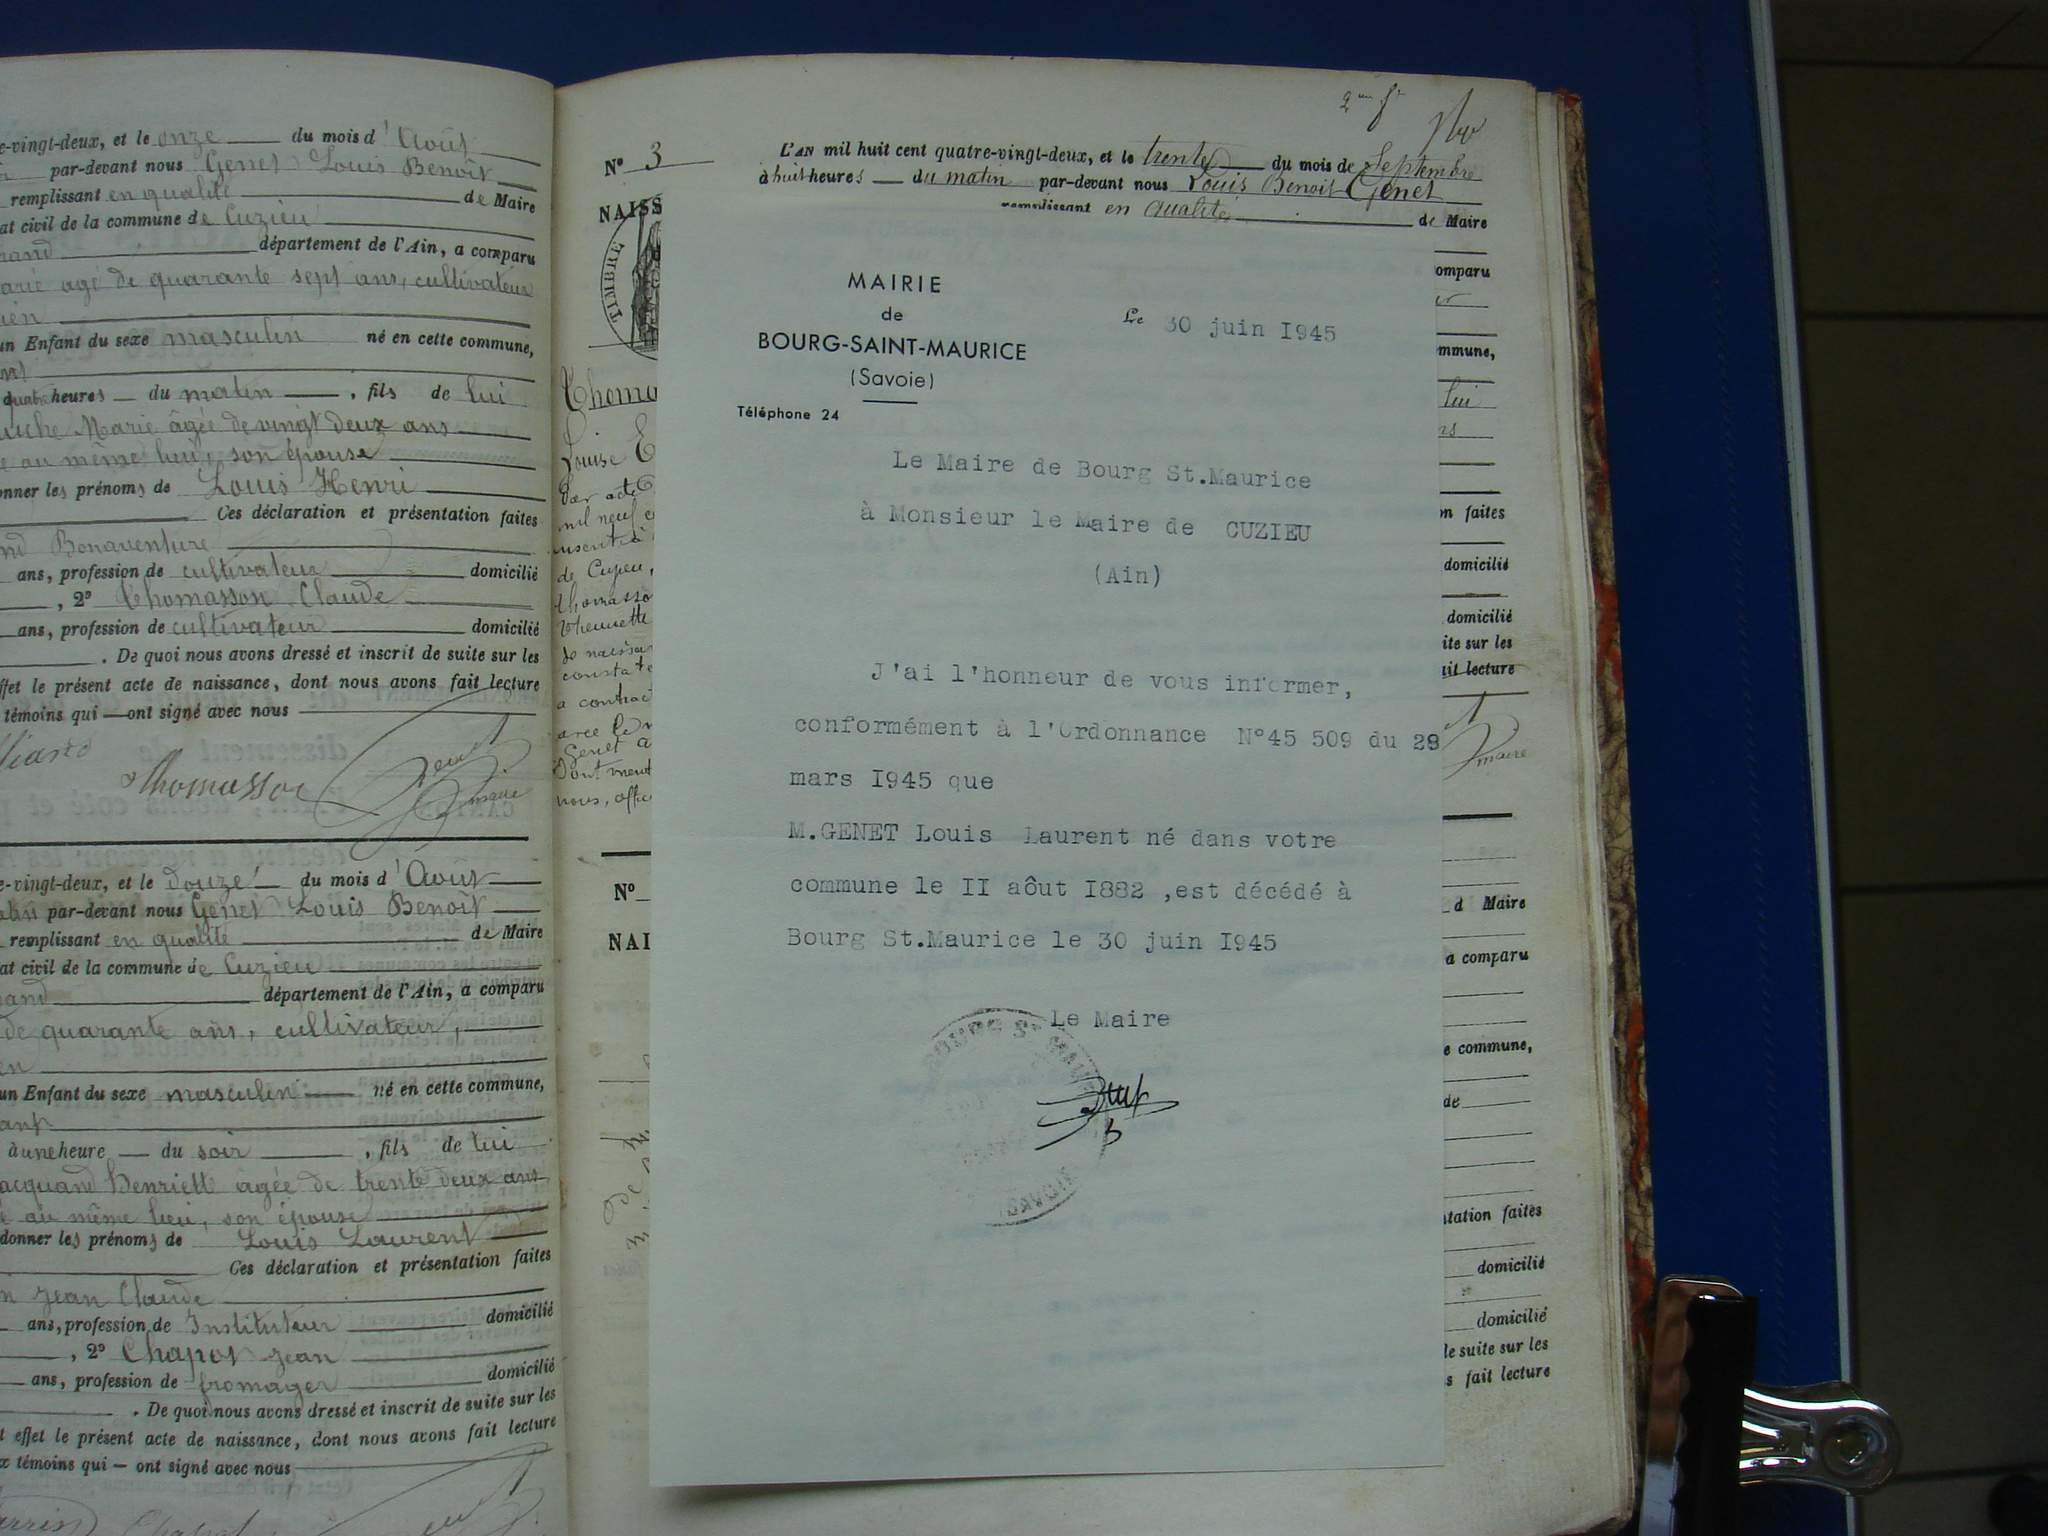 e-vingt-deux, et le onze du mois d'Août
par-devant nous Genet Louis Benoît
remplissant en qualité de Maire
at civil de la commune de Cuzieu
département de l'Ain, a comparu
arié agé de quarante sept ans, cultivateur
un Enfant du sexe masculin né en cette commune,
quatre heures du matin, fils de lui
uche Marie âgée de vingt deux ans
e au même lieu, son épouse
onner les prénoms de Louis Henri
Ces déclaration et présentation faites
nd Bonaventure
ans, profession de cultivateur domicilié
, 2° Thomasson Claude
ans, profession de cultivateur domicilié
. De quoi nous avons dressé et inscrit de suite sur les
ffet le présent acte de naissance, dont nous avons fait lecture
témoins qui — ont signé avec nous
Thomasson
Genet
maire
e-vingt-deux, et le douze du mois d'Août
par-devant nous Genet Louis Benoît
remplissant en qualité de Maire
at civil de la commune de Cuzieu
département de l'Ain, a comparu
de quarante ans, cultivateur,
un Enfant du sexe masculin né en cette commune,
à une heure du soir, fils de lui
acquand Henriett âgée de trente deux ans
e au même lieu, son épouse
donner les prénoms de Louis Laurent
Ces déclaration et présentation faites
n Jean Claude
ans, profession de Instituteur domicilié
, 2° Chapot Jean
ans, profession de fromager domicilié
. De quoi nous avons dressé et inscrit de suite sur les
t effet le présent acte de naissance, dont nous avons fait lecture
x témoins qui — ont signé avec nous
N° 3
L'AN mil huit cent quatre-vingt-deux, et le trente du mois de Septembre
à huit heures du matin par-devant nous Louis Benoit Genet
remplissant en qualité de Maire
NAISS
TIMBRE
Thoma
Louise E
Par acte
mil neuf c
thomasso
de naissa
constate
a contrac
avec le
Genet
Dont ment
nous, offic
N°
NAI
MAIRIE
de
BOURG-SAINT-MAURICE
(Savoie)
Téléphone 24
Le 30 juin I945
Le Maire de Bourg St.Maurice
à Monsieur le Maire de CUZIEU
(Ain)
J'ai l'honneur de vous informer,
conformément à l'Ordonnance N°45 509 du 28
mars I945 que
M.GENET Louis Laurent né dans votre
commune le II aôut I882 ,est décédé à
Bourg St.Maurice le 30 juin I945
Le Maire
omparu
mmune,
lui
ns
n faites
domicilié
domicilié
ite sur les
it lecture
maire
d Maire
a comparu
e commune,
de
tation faites
domicilié
domicilié
le suite sur les
s fait lecture